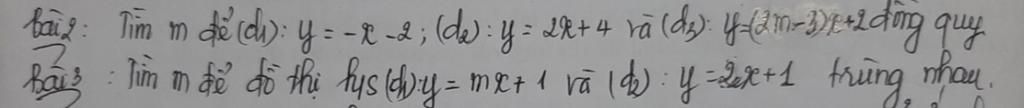 Bài 2: Tìm m để (d1): y = -x - 2 ; (d2): y = 2x + 4 và (d3): y = (2m - 3)x + 2 đồng quy
Bài 3 : Tìm m để đồ thị hys (d1): y = mx + 1 và (d2) : y = 2x + 1 trùng nhau.